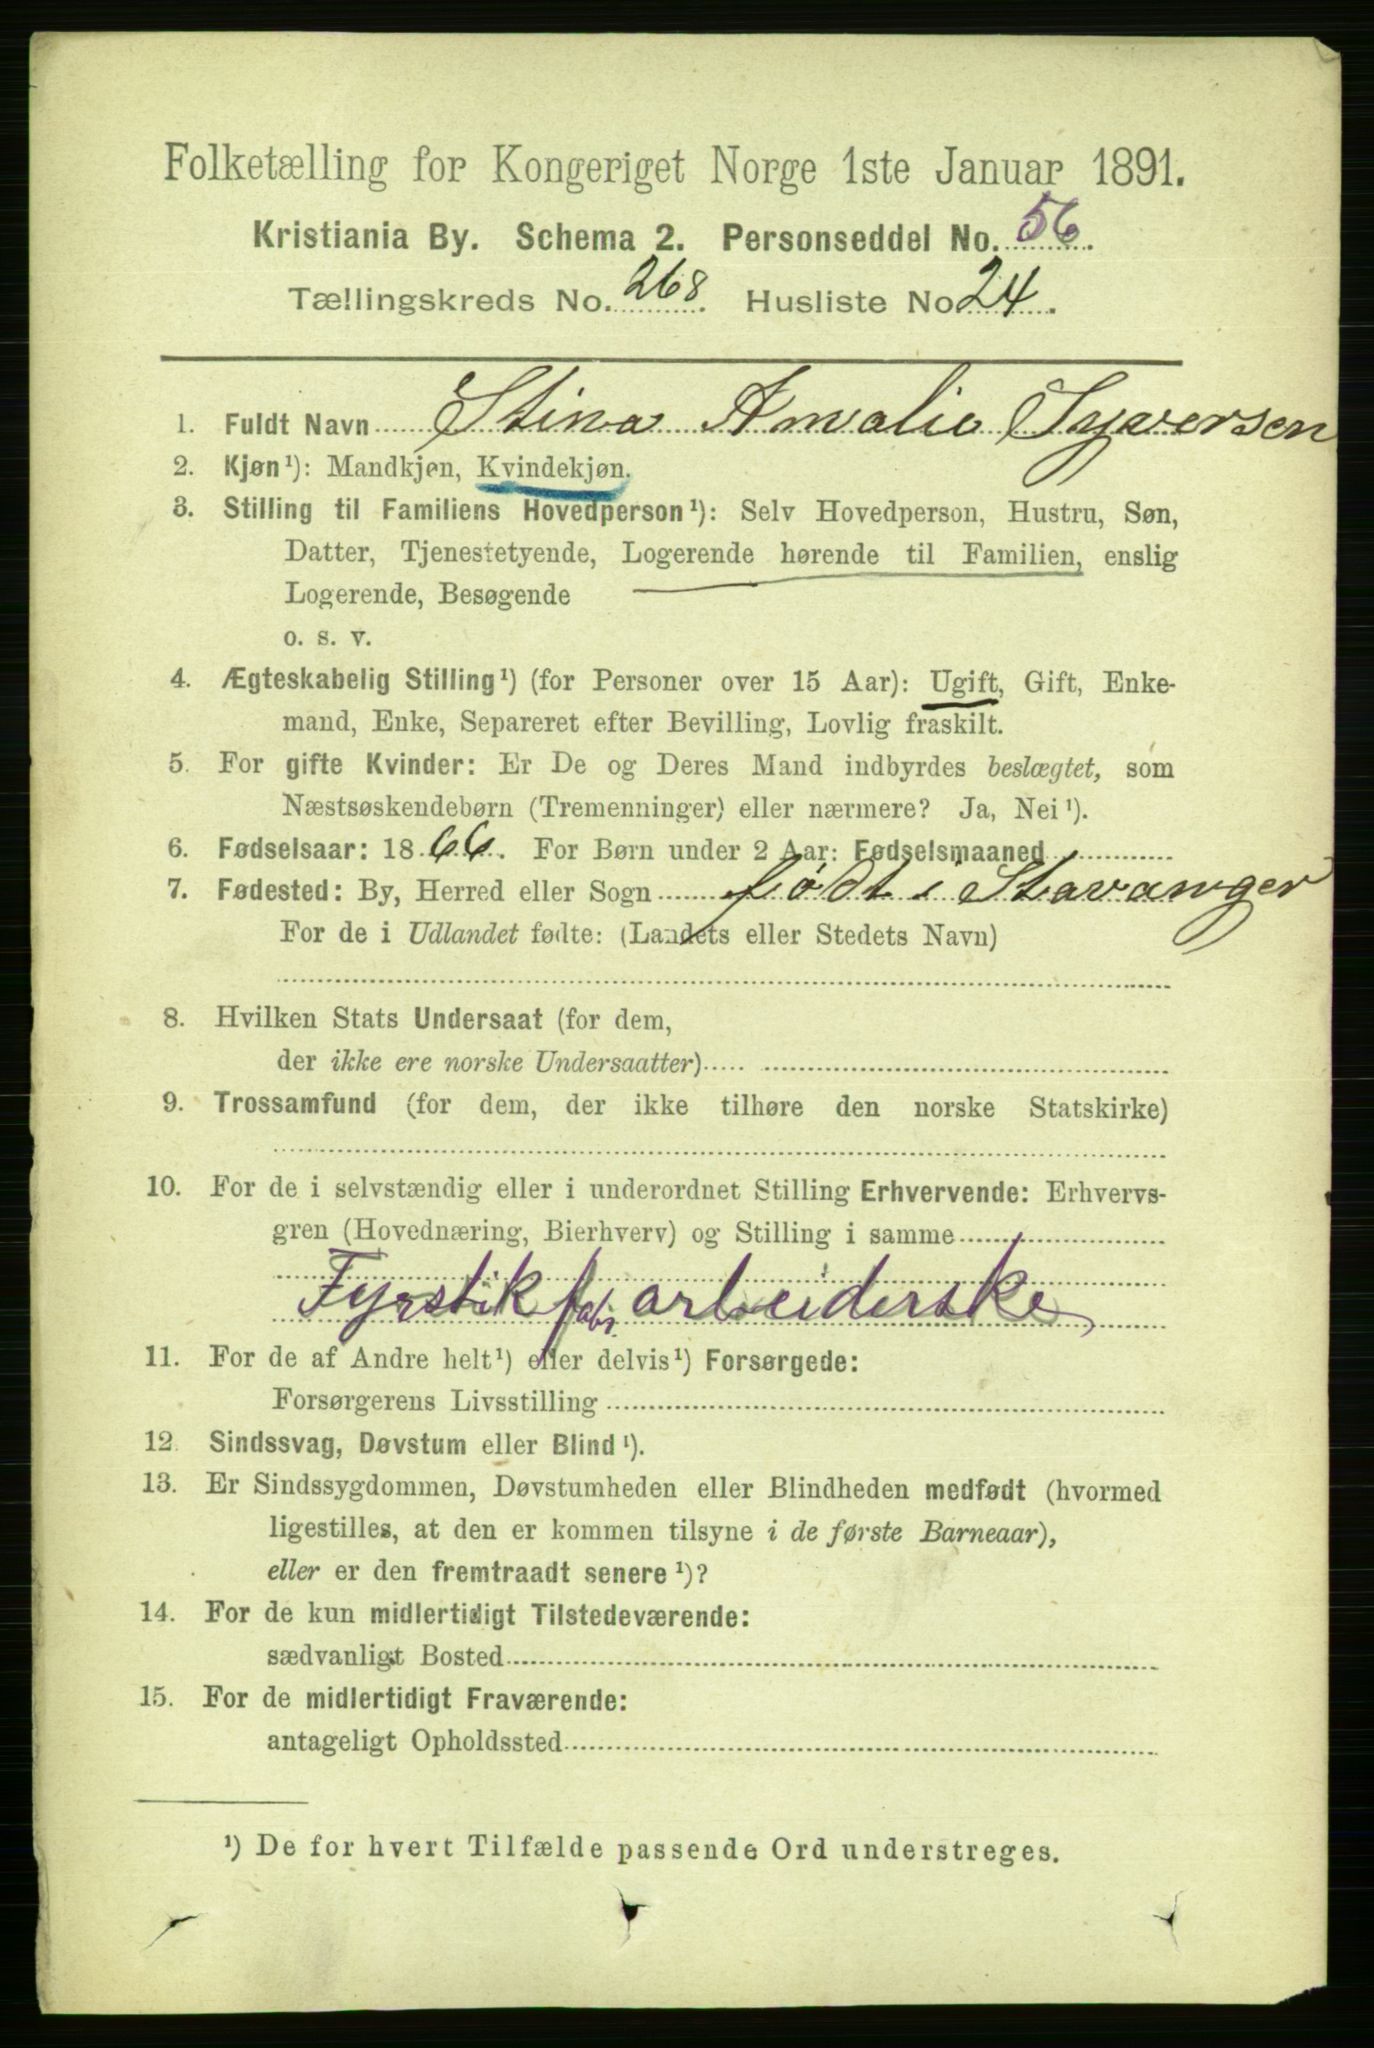 Folketælling for Kongeriget Norge 1ste Januar 1891.
Kristiania By. Schema 2. Personseddel No. 56.
Tællingskreds No. 268. Husliste No 24.
1. Fuldt Navn Stina Amalie Syversen
2. Kjøn¹): Mandkjøn, Kvindekjøn.
3. Stilling til Familiens Hovedperson¹): Selv Hovedperson, Hustru, Søn,
Datter, Tjenestetyende, Logerende hørende til Familien, enslig
Logerende, Besøgende
o. s. v.
4. Ægteskabelig Stilling¹) (for Personer over 15 Aar): Ugift, Gift, Enke-
mand, Enke, Separeret efter Bevilling, Lovlig fraskilt.
5. For gifte Kvinder: Er De og Deres Mand indbyrdes beslægtet, som
Næstsøskendebørn (Tremenninger) eller nærmere? Ja, Nei¹).
6. Fødselsaar: 1866. For Børn under 2 Aar: Fødselsmaaned
7. Fødested: By, Herred eller Sogn født i Stavanger
For de i Udlandet fødte: (Landets eller Stedets Navn)
8. Hvilken Stats Undersaat (for dem,
der ikke ere norske Undersaatter)
9. Trossamfund (for dem, der ikke tilhøre den norske Statskirke)
10. For de i selvstændig eller i underordnet Stilling Erhvervende: Erhvervs-
gren (Hovednæring, Bierhverv) og Stilling i samme
Fyrstikfabr. arbeiderske
11. For de af Andre helt¹) eller delvis¹) Forsørgede:
Forsørgerens Livsstilling
12. Sindssvag, Døvstum eller Blind¹).
13. Er Sindssygdommen, Døvstumheden eller Blindheden medfødt (hvormed
ligestilles, at den er kommen tilsyne i de første Barneaar),
eller er den fremtraadt senere¹)?
14. For de kun midlertidigt Tilstedeværende:
sædvanligt Bosted
15. For de midlertidigt Fraværende:
antageligt Opholdssted
¹) De for hvert Tilfælde passende Ord understreges.